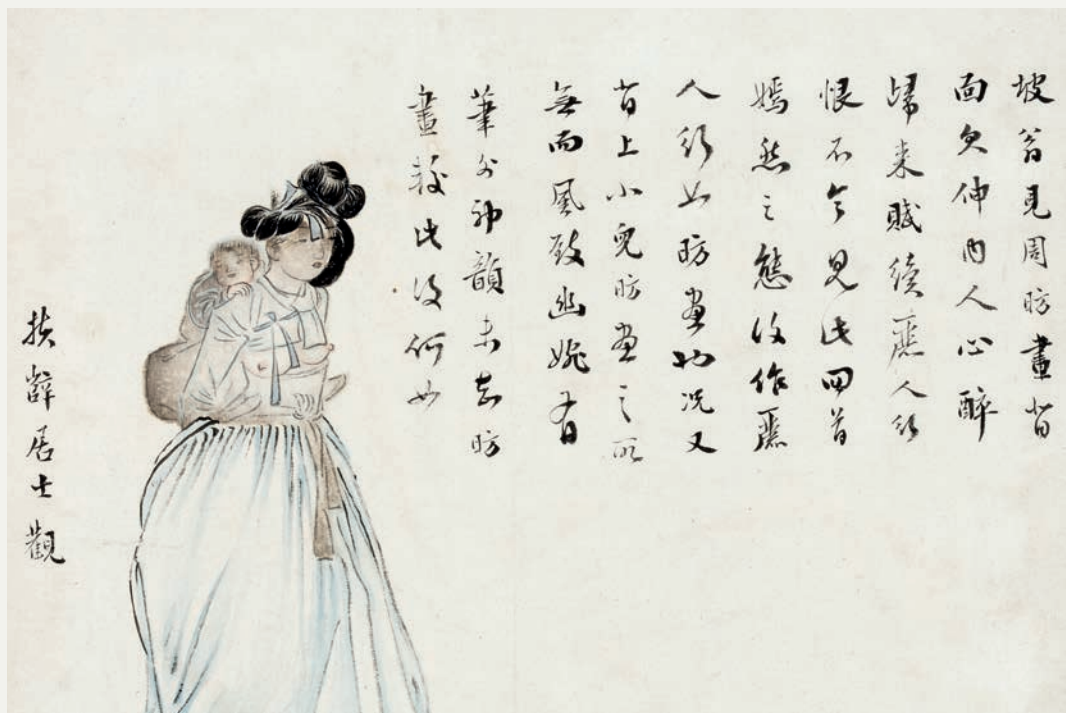 坡翁見周昉畫背
面欠伸內人心醉
歸来賦續麗人行
恨不令見此回首
嫣然之態復作麗
人行如昉畫也況又
背上小兒昉畫之所
無而風致幽婉有
筆外神韻未知昉
畫較此復何如
扶辥居士觀